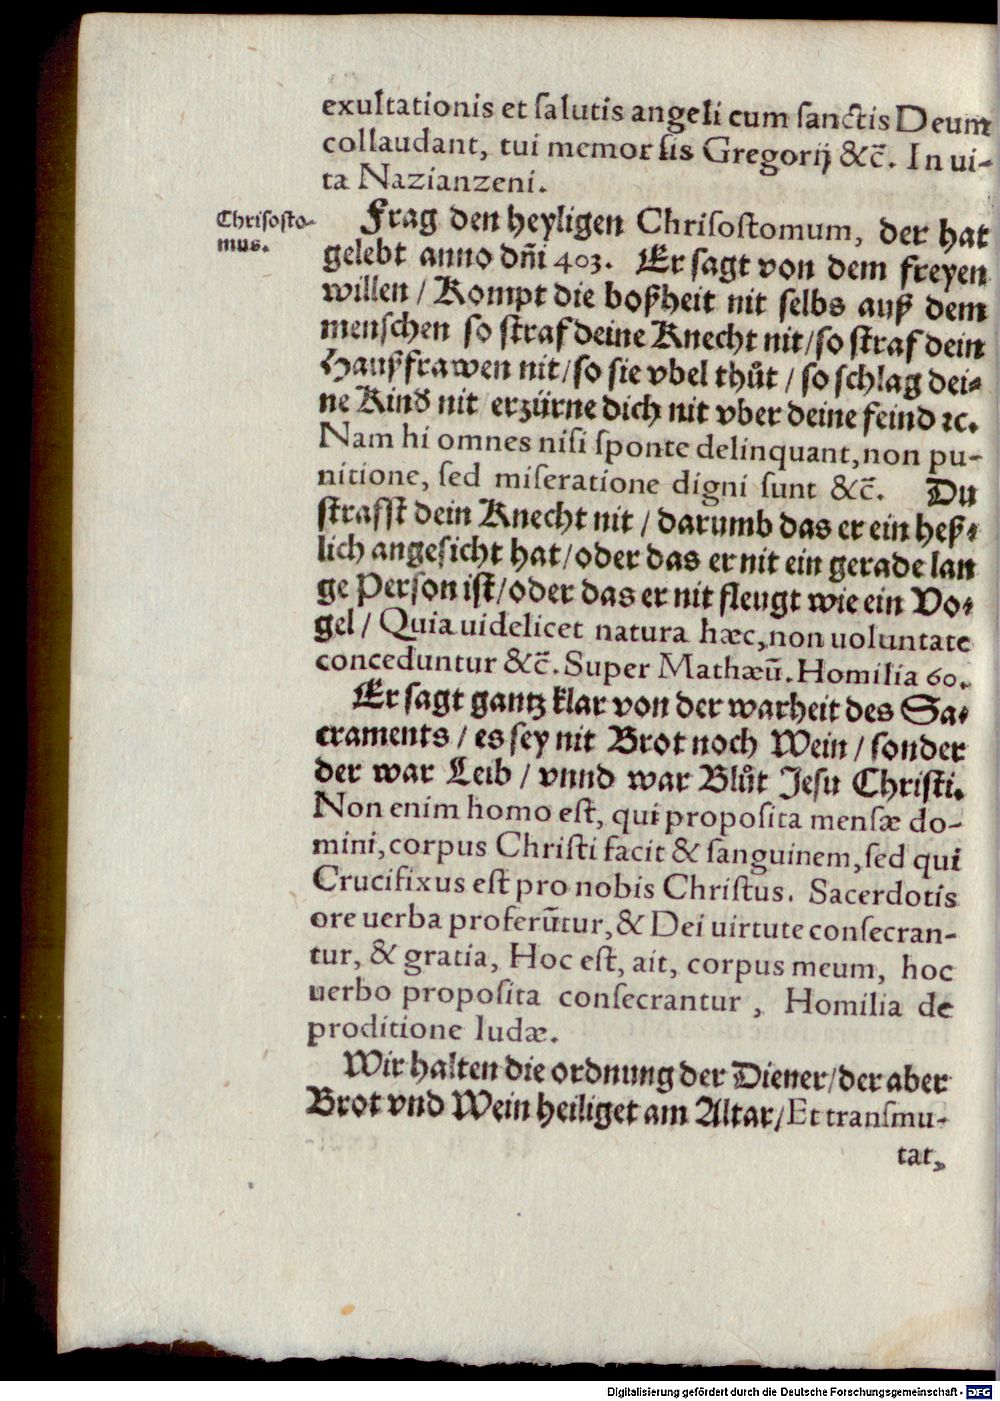 exultationis et ſalutis angeli cum ſanctis Deum
collaudant, tui memor ſis Gregorij &c̄. In ui-
ta Nazianzeni.
Chriſoſto-
mus.
Frag den heyligen Chriſoſtomum, der hat
gelebt anno dn̄i 403. Er ſagt von dem freyen
willen / Kompt die boßheit nit ſelbs auß dem
menſchen ſo ſtraf deine Knecht nit/ſo ſtraf dein
Haußfrawen nit/ſo ſie vbel thůt / ſo ſchlag dei-
ne Kind nit erzürne dich nit vber deine feind ꝛc.
Nam hi omnes niſi ſponte delinquant, non pu-
nitione, ſed miſeratione digni ſunt &c̄. Du
ſtraffſt dein Knecht nit / darumb das er ein heß-
lich angeſicht hat/oder das er nit ein gerade lan
ge Perſon iſt/oder das er nit fleugt wie ein Vo-
gel / Quia uidelicet natura hæc, non uoluntate
conceduntur &c̄. Super Mathæū. Homilia 60.
Er ſagt gantz klar von der warheit des Sa-
craments / es ſey nit Brot noch Wein / ſonder
der war Leib / vnnd war Blůt Jeſu Chriſti.
Non enim homo eſt, qui propoſita menſæ do-
mini, corpus Chriſti facit & ſanguinem, ſed qui
Crucifixus eſt pro nobis Chriſtus. Sacerdotis
ore uerba proferūtur, & Dei uirtute conſecran-
tur, & gratia, Hoc eſt, ait, corpus meum, hoc
uerbo propoſita conſecrantur, Homilia de
proditione Iudæ.
Wir halten die ordnung der Diener/der aber
Brot vnd Wein heiliget am Altar/Et tranſmu-
tat,
Digitalisierung gefördert durch die Deutsche Forschungsgemeinschaft - DFG